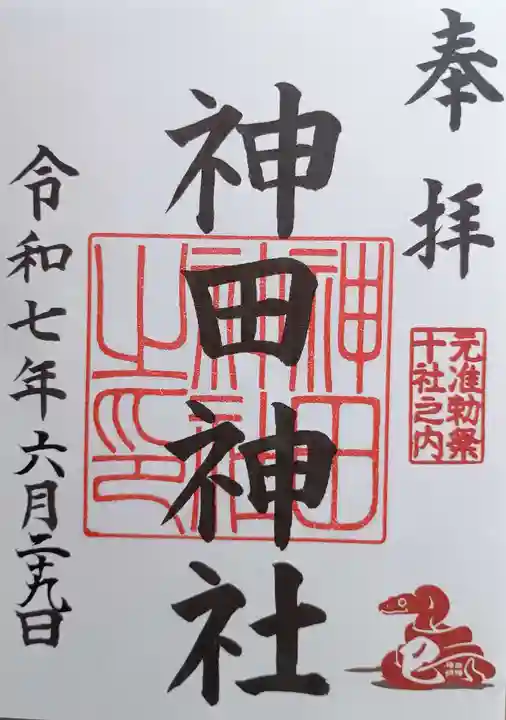 奉拝
元准勅祭
十社之内
巳
神田神社
神田
神社
之印
令和七年六月二十九日